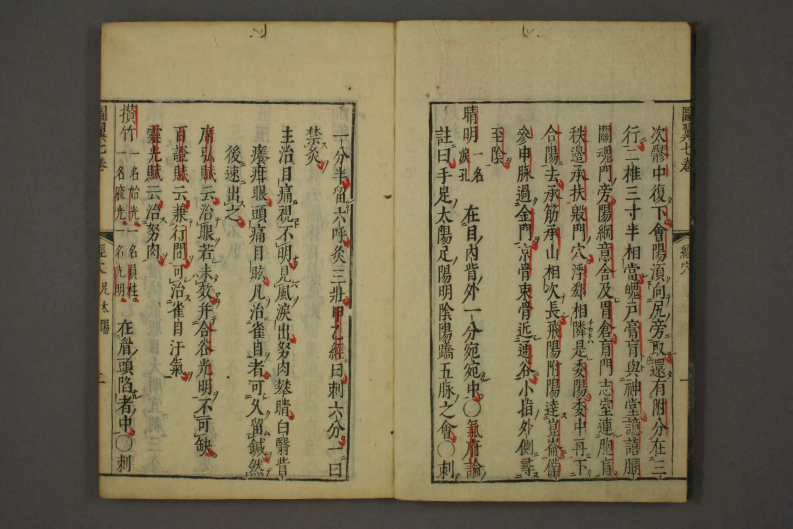 圖翼七卷
經穴
一
次髎中復下會陽須向尻旁取還有附分在三
行二椎三寸半相當魄戶膏肓與神堂譩譆膈
關魂門旁陽綱意舍及胃倉肓門志室連胞肓
秩邊承扶殷門穴浮郄相隣是委陽委中再下
合陽去承筋承山相次長飛陽附陽達崑崙僕
參申脉過金門京骨束骨近通谷小指外側尋
至陰
睛明 一名淚孔 在目內眥外一分宛宛中○氣府論
註曰手足太陽足陽明陰陽蹻五脉之會○刺
一分半留六呼灸三壯甲乙經曰刺六分一曰
禁灸
主治目痛視不明見風淚出努肉攀睛白翳眥
癢疳眼頭痛目眩凡治雀目者可久留鍼然
後速出之
席弘賦云治眼若未效并合谷光明不可缺
百證賦云兼行間可治雀目汗氣
靈光賦云治努肉
攢竹 一名始光一名員柱一名夜光一名光明 在眉頭陷者中○刺
圖翼七卷
經穴 足太陽
二